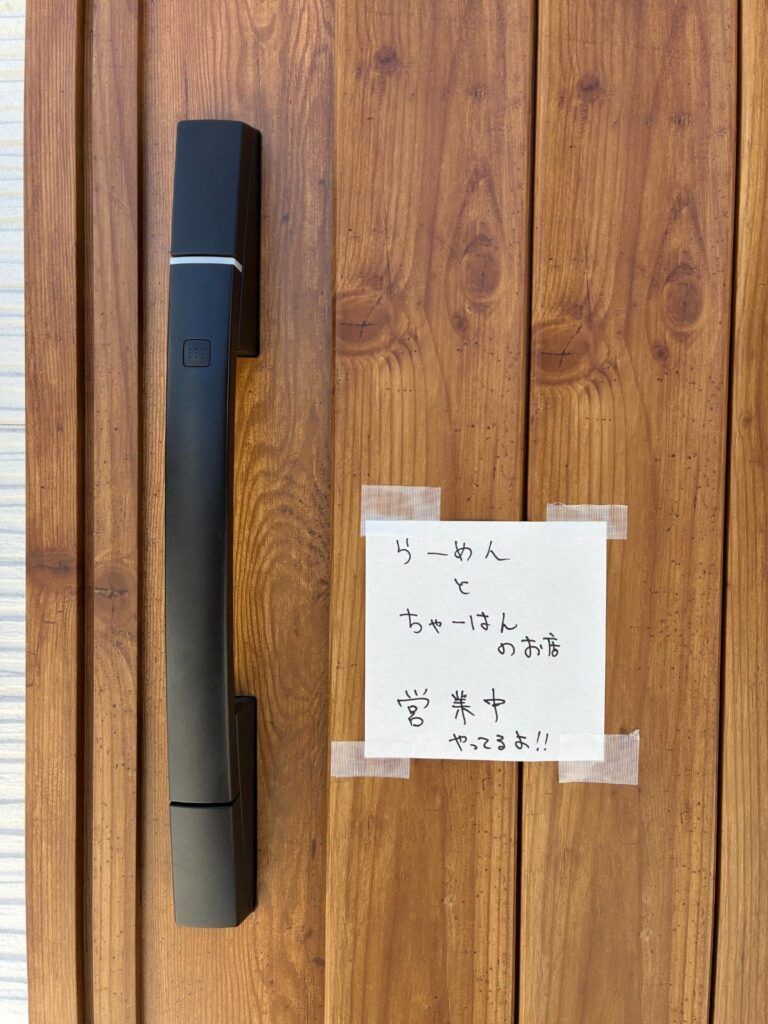 らーめん
と
ちゃーはん
のお店
営業中
やってるよ!!